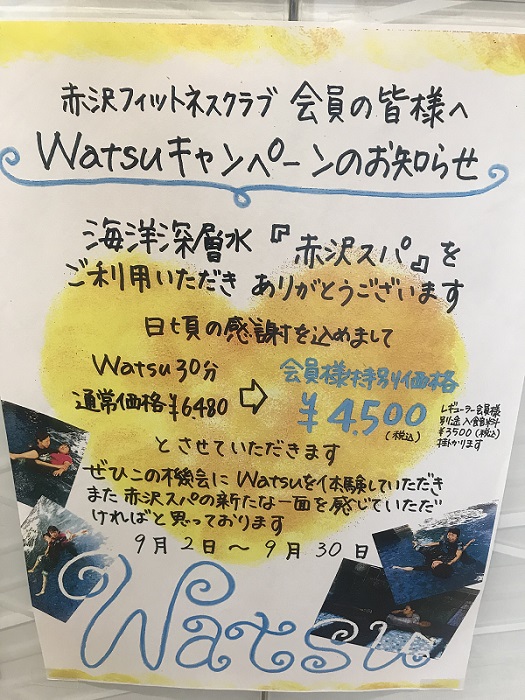 赤沢フィットネスクラブ 会員の皆様へ
Watsuキャンペーンのお知らせ
海洋深層水『赤沢スパ』を
ご利用いただき ありがとうございます
日頃の感謝を込めまして
Watsu 30分
通常価格¥6480
⇨
会員様特別価格
¥4,500
(税込)
レギュラー会員様
別途入館料
¥3500(税込)
掛かります
とさせていただきます
ぜひこの機会にWatsuを体験していただき
また 赤沢スパの新たな一面を感じていただ
ければと思っております
9月2日～9月30日
Watsu